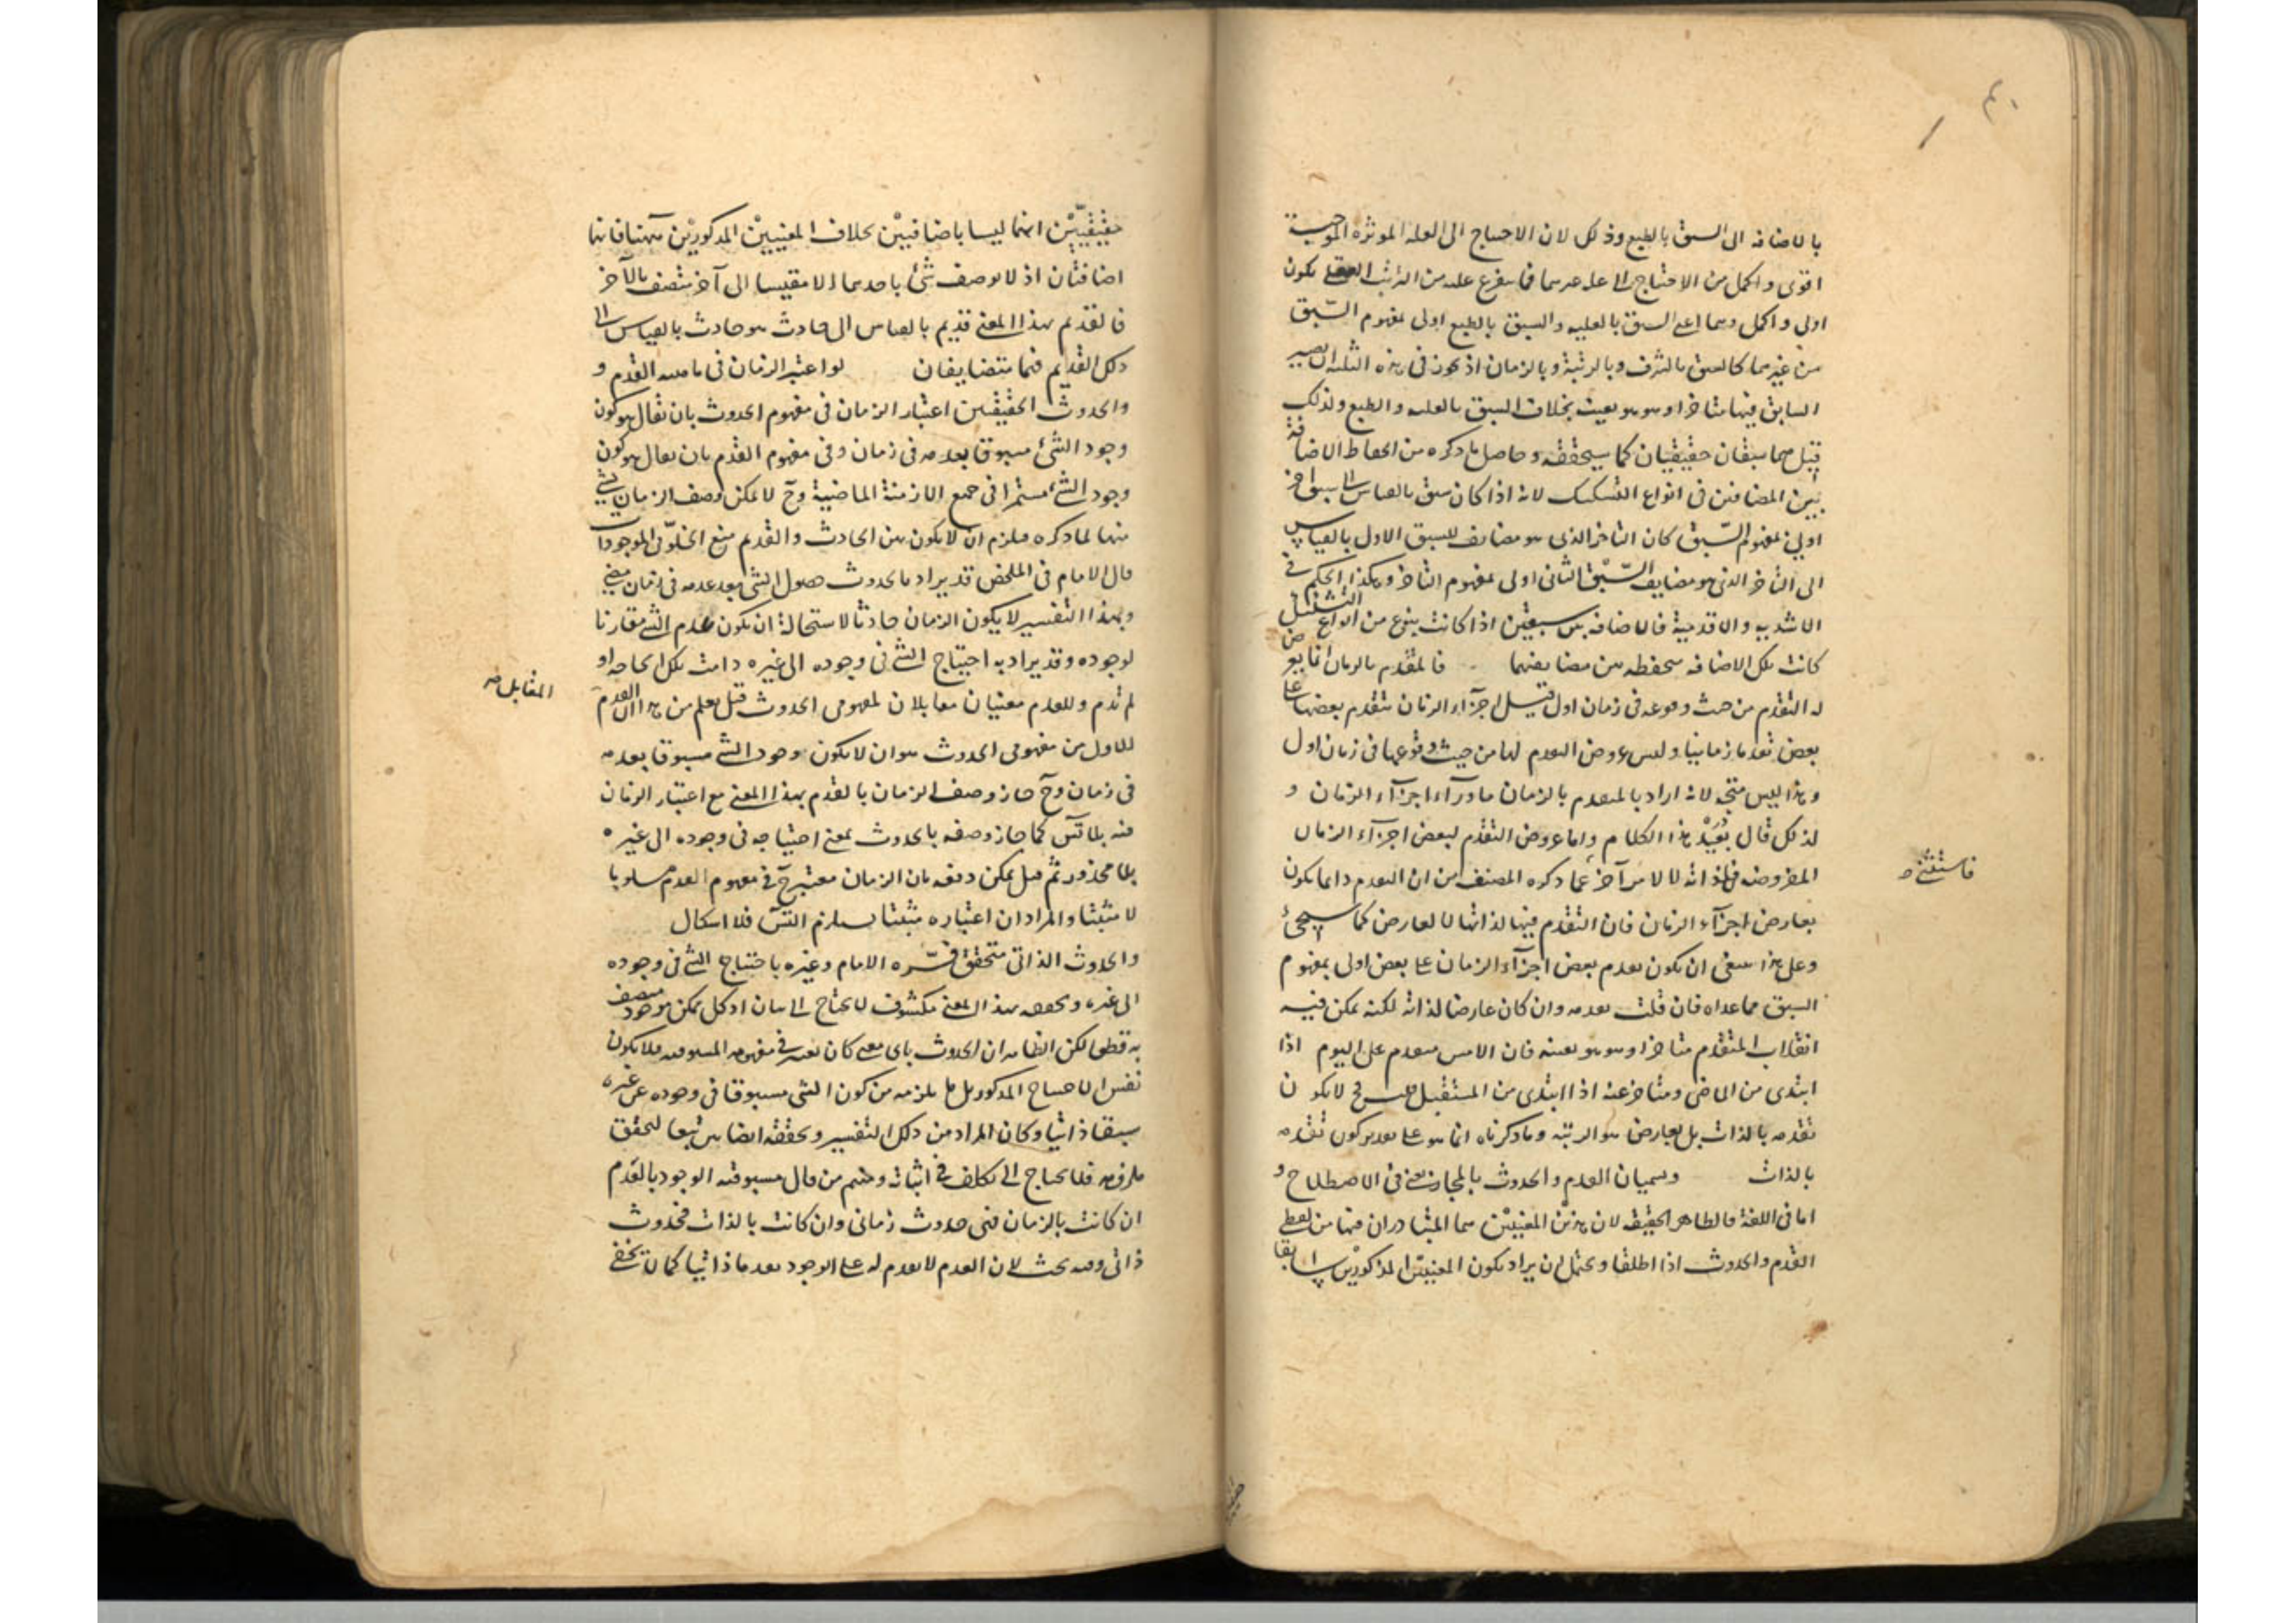 بالاضافه الى السبق بالطبع وذلك لان الاحتياج الى العله الموثره الموجبة
اقوى واكمل من الاحتياج الى عله غيرها فما يتفرع عليه من الترتب العقلى يكون
اولى واكمل وهما اعنى السبق بالعليه والسبق بالطبع اولى بمفهوم السّبق
من غيرهما كالسبق بالشرف وبالرتبة وبالزمان اذ يجوز فى هذه الثلثه ان يصير
السابق فيها متاخرا وهو هو بعينه بخلاف السبق بالعليه والطبع ولذلك
قيل هما سبقان حقيقيان كما سيحققه وحاصل ما ذكره من انحفاظ الاضافة
بين المضافين فى انواع التشكيك لانه اذا كان سبق بالقياس الى سبق اخر
اولى بمفهوم السّبق كان التاخر الذى هو مضايف للسبق الاول بالقياس
الى التاخر الذى هو مضايف السّبق الثانى اولى بمفهوم التاخر وهكذا الحكم فى
الاشديه والاقدمية فالاضافه بين سبقين اذا كانت بنوع من انواع التشكيك
كانت تلك الاضافه منحفظه بين مضايفيهما فالمتقدم بالزمان انما يعرض
له التقدم من حيث وقوعه فى زمان اول قيل اجزآء الزمان يتقدم بعضها على
بعض تقدما زمانيا وليس عروض التقدم لها من حيث وقوعها فى زمان اول
وهذا ليس متجه لانه اراد بالمتقدم بالزمان ما ورآء اجزآء الزمان و
لذلك قال بُعَيْدَ هذا الكلام واما عروض التقدم لبعض اجزآء الزمان
المفروضه فلذاته لا لامر آخر عما ذكره المصنف من ان التقدم دايما يكون
فاستثنى صح
بعارض اجزآء الزمان فان التقدم فيها لذاتها لا لعارض كما سيجئ
وعلى هذا ينبغى ان يكون تقدم بعض اجزآء الزمان على بعض اولى بمفهوم
السبق مما عداه فان قلت تقدمه وان كان عارضا لذاته لكنه يمكن فيه
انقلاب المتقدم متاخرا وهو هو بعينه فان الامس متقدم على اليوم اذا
ابتدى من الماضى ومتاخر عنه اذا ابتدى من المستقبل قلت فح لا يكون
تقدمه بالذات بل بعارض هو الرتبه وما ذكرناه انما هو على تقدير كون تقدمه
بالذات ويسميان القدم والحدوث بالمجاز يعنى فى الاصطلاح و
اما فى اللغة فالظاهر الحقيقه لان هذين المعنيين هما المتبادران فيها من لفظى
القدم والحدوث اذا اطلقا ويحتمل ان يراد بكون المعنيين المذكورين سابقا
حقيقيّين انهما ليسا باضافيين بخلاف المعنيين المذكورين ههنا فانهما
اضافتان اذ لا يوصف شئ باحدهما الا مقيسا الى آخر متصف بالآخر
فالقديم بهذا المعنى قديم بالقياس الى حادث هو حادث بالقياس الى
ذلك القديم فهما متضايفان لو اعتبر الزمان فى ماهية القدم و
والحدوث الحقيقين اعتبار الزمان فى مفهوم الحدوث بان تقال هو كون
وجود الشئ مسبوقا بعدمه فى زمان وفى مفهوم القدم بان يقال هو كون
وجود الشئ مستمرا فى جميع الازمنة الماضية وح لا يمكن وصف الزمان بشئ
منهما لما ذكره فيلزم ان لا يكون بين الحادث والقديم منع الخلوّ فى الموجودات
قال الامام فى الملخص قد يراد بالحدوث حصول الشئ بعد عدمه فى زمان مضى
وبهذا التفسير لا يكون الزمان حادثا لاستحالة ان يكون عدم الشئ مقارنا
لوجوده وقد يراد به احتياج الشئ فى وجوده الى غيره دامت تلك الحاجه او
لم تدم وللقدم معنيان مقابلان لمفهومى الحدوث قيل يعلم من هذا ان القدم
المقابل صح
للاول من مفهومى الحدوث هو ان لا يكون وجود الشئ مسبوقا بعدمه
فى زمان وح جاز وصف الزمان بالقدم بهذا المعنى مع اعتبار الزمان
فيه بلا تسَ كما جاز وصفه بالحدوث بمعنى احتياجه فى وجوده الى غيره
بلا محذور ثم قيل يمكن دفعه بان الزمان معتبر ح فى مفهوم القدم مسلوبا
لا مثبتا والمراد ان اعتباره مثبتا يستلزم التسَ فلا اشكال
والحدوث الذاتى متحقق فسّره الامام وغيره باحتياج الشئ فى وجوده
الى غيره وتحققه بهذا المعنى مكشوف لا يحتاج الى بيان اذ كل ممكن موجود متصف
به قطعا لكن الظاهر ان الحدوث باى معنى كان يعتبر فى مفهومه المسبوقيه فلا يكون
نفس الاحتياج المذكور بل ما يلزمه من كون الشئ مسبوقا فى وجوده عن غيره
سبقا ذاتيا وكان المراد من ذلك التفسير وتحققه ايضا بين تبعا لتحقق
ملزومه فلا يحتاج الى تكلف فى اثباته ومنهم من قال مسبوقيه الوجود بالعدم
ان كانت بالزمان فهى حدوث زمانى وان كانت بالذات فحدوث
ذاتى وفيه بحث لان العدم لا تقدم له على الوجود تقدما ذاتيا كما لا يخفى